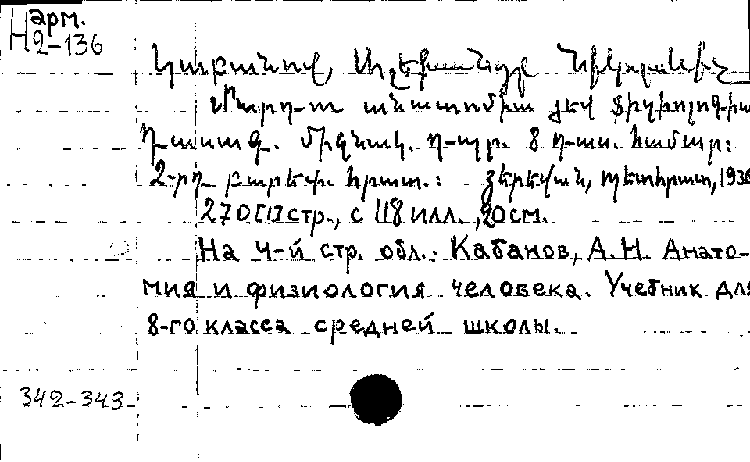 арм.
H2-136
Կաբանով, Ալեքսանդր Նիկոլաևիչ
Մարդու անատոմիա յեվ ֆիզիոլոգիա
Դասագ. միջնակ. դպր. 8 դաս. համար:
2-րդ բարեփ. հրատ.: Յերեվան, Պետհրատ, 1936
270[1] стр., с 118 илл., 20см.
На 4-й стр. обл.: Кабанов, А. Н. Анато-
мия и физиология человека. Учебник для
8-го класса средней школы.
342-343